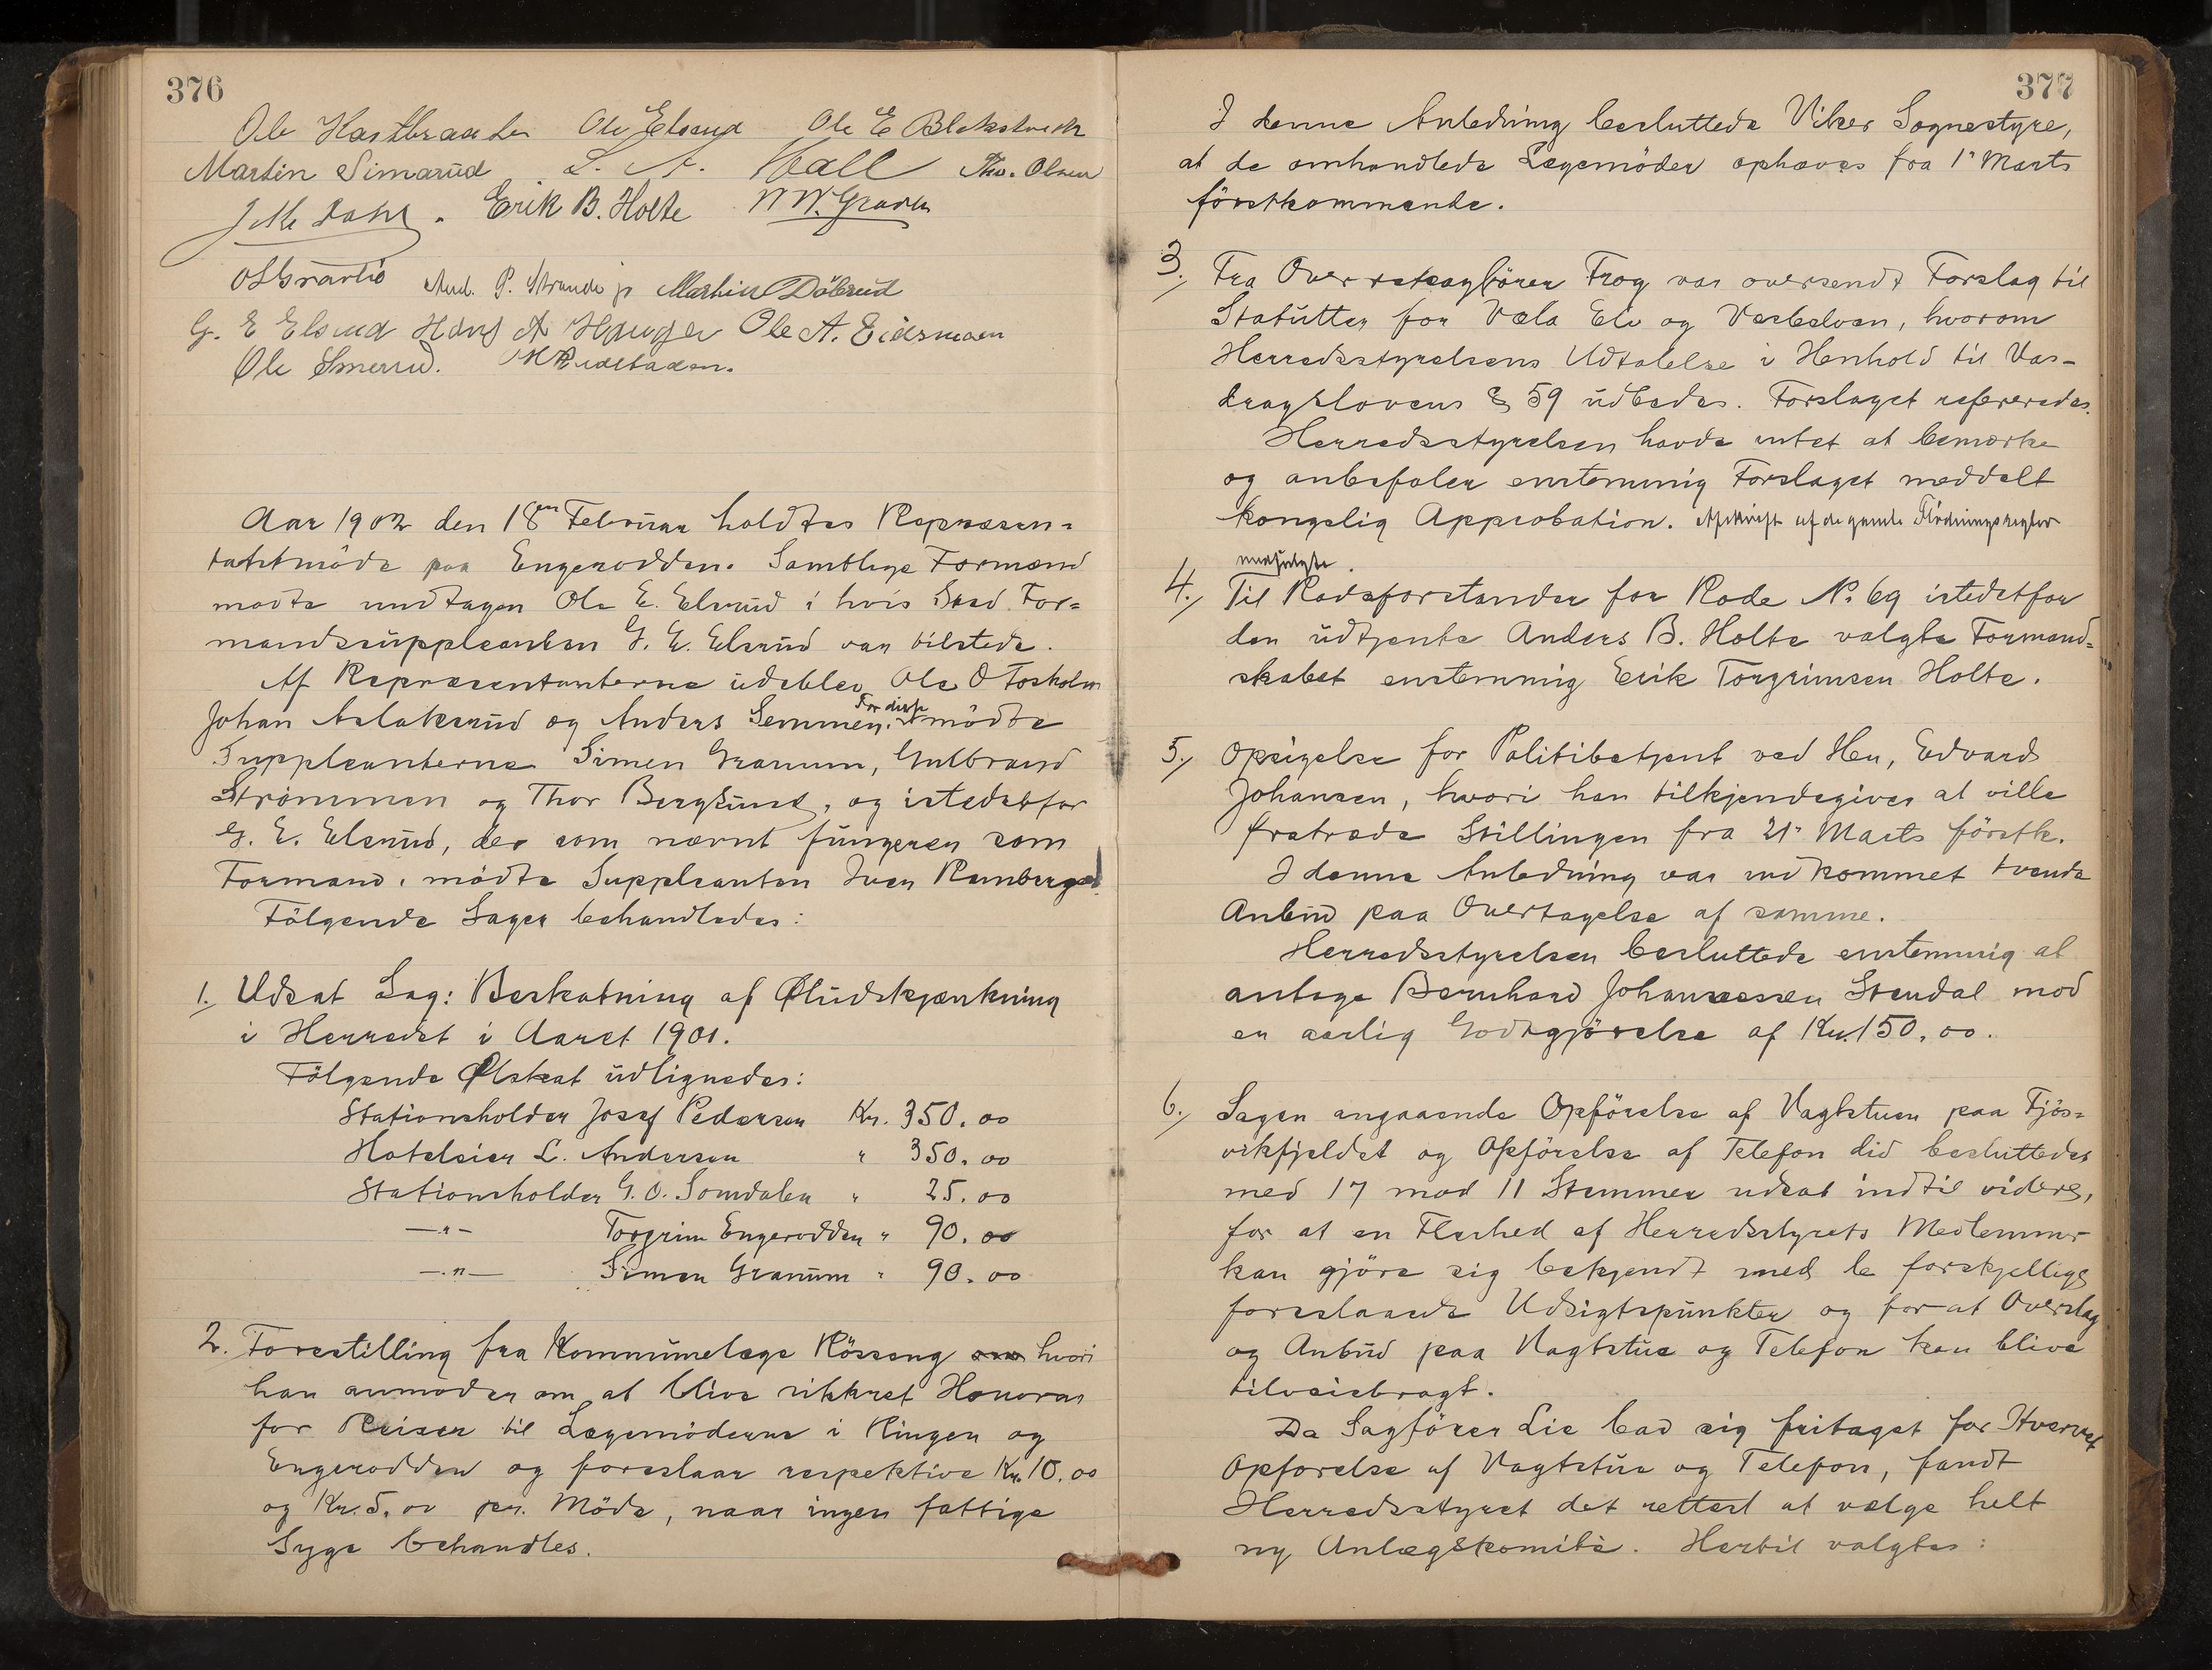 376
Ole Hastbraaten Ole Elsrud Ole E Blakstvedt
Martin Simarud L. A. Hall Tho. Olsen
Erik B. Holte
And. P. Strande jr Martin Döbrud
G. E Elsrud Hans A Hauger Ole A. Eidsmoen
Ole Smerud.
Aar 1902 den 18en Februar holdtes Repræsen=
tantmöde paa Engerodden. Samtlige Formænd
mødte undtagen Ole E. Elsrud i hvis Sted For=
mandssuppleanten G. E. Elsrud var tilstede.
Af Repræsentanterne udeblev Ole O Foskolm
Johan Aslaksrud og Anders Semmen. For disse mödte
Suppleanterne Simen Granum, Gulbrand
Strömmen og Thor Berglund, og istedetfor
G. E. Elsrud, der som nævnt fungerer som
Formand, mödte Suppleanten Iver Ramberget.
Fölgende Sager behandledes:
1. Udsat Sag: Beskatning af Øludskjænkning
i Herredet i Aaret 1901.
Fölgende Ølskat udlignedes:
Stationsholder Josef Pedersen Kr. 350.00
Hoteleier L. Andersen " 350.00
Stationsholder G. O. Somdalen " 25.00
—"— Torgrim Engerodden " 90.00
—"— Simen Granum " 90.00
2. Forestilling fra Kommunelæge Rösseng hvori
han anmoder om at blive sikkret Honorar
for Reiser til Lægemöderne i Ringen og
Engerodden og foreslaar respektive Kr. 10.00
og Kr. 5.00 pr. Möde, naar ingen fattige
Syge behandles.
377
I denne Anledning besluttede Viker Sognestyre,
at de omhandlede Lægemöder ophæves fra 1' Marts
förstkommende.
3. Fra Overretssagförer Frog var oversendt Forslag til
Statutter for Væla Elv og Vesleelven, hvorom
Herredsstyrelsens Udtalelse i Henhold til Vas-
dragslovens § 59 udbedes. Forslaget refereredes.
Herredsstyrelsen havde intet at bemærke
og anbefaler enstemmig Forslaget meddelt
kongelig Approbation. Afskrift af de gamle Flödningsregler
medfulgte.
4. Til Rodeforstander for Rode No. 69 istedetfor
den udtjente Anders B. Holte valgte Formand=
skabet enstemmig Erik Torgrimsen Holte.
5. Opsigelse for Politibetjent ved Hen, Edvard
Johansen, hvori han tilkjendegiver at ville
fratræde Stillingen fra 21' Marts förstk.
I denne Anledning var indkommet tvende
Anbud paa Overtagelse af samme.
Herredsstyrelsen besluttede enstemmig at
antage Bernhard Johannessen Stendal mod
en aarlig Godtgjörelse af Kr. 150.00.
6. Sagen angaaende Opförelse af Vagtstuen paa Fjös=
vikfjeldet og Opförelse af Telefon did besluttedes
med 17 mod 11 Stemmer udsat indtil videre,
for at en Flerhed af Herredsstyrets Medlemmer
kan gjöre sig bekjendt med de forskjellige
foreslaaede Udsigtspunkter og for at Overslag
og Anbud paa Vagtstue og Telefon kan blive
tilveiebragt.
Da Sagförer Lie bad sig fritaget for Hvervet
Opförelse af Vagtstue og Telefon, fandt
Herredsstyret det rettest at vælge helt
ny Anlægskomité. Hertil valgtes: